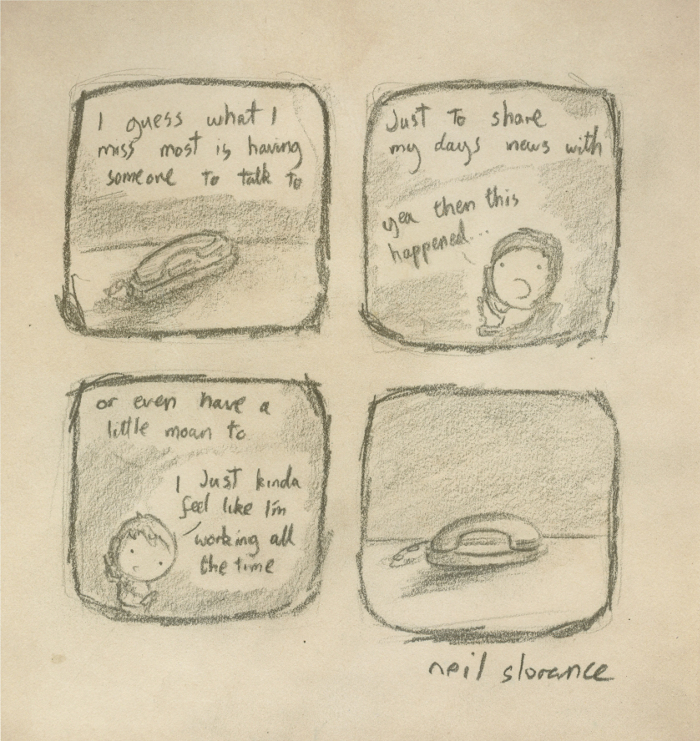 I guess what I
miss most is having
someone to talk to
Just to share
my days news with
yea then this
happened...
or even have a
little moan to
I Just kinda
feel like I'm
working all
the time
neil slorance